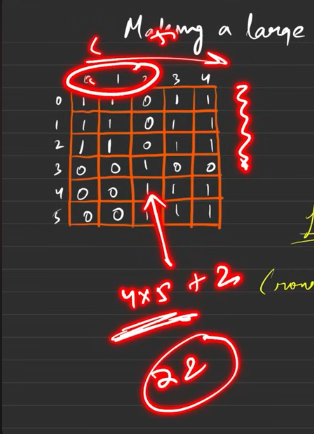 Making a large
0 1 2 3 4
0 1 1 0 1 1
1 1 1 0 1 1
2 1 1 0 1 1
3 0 0 1 0 0
4 0 0 1 1 1
5 0 0 1 1 1
4x5 + 2
22